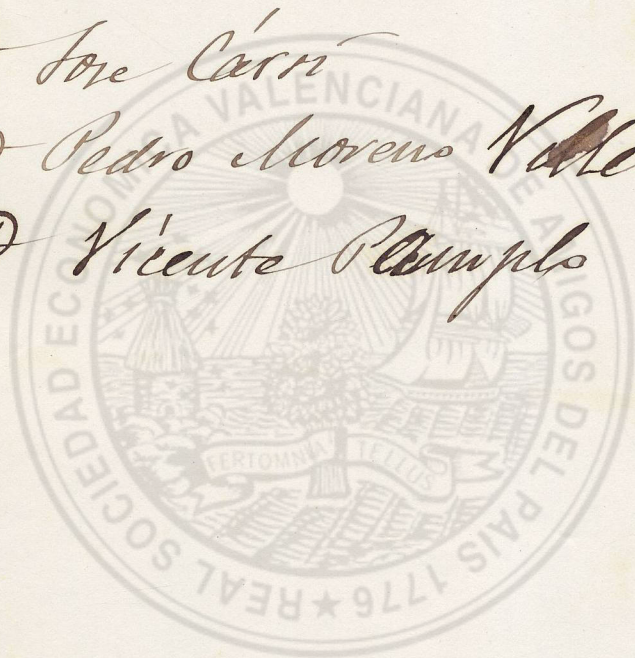 José Cársi
D Pedro Moreno
D Vicente Pamplo
REAL SOCIEDAD ECONOMICA VALENCIANA DE AMIGOS DEL PAIS 1776
FERT OMNIA TELLUS